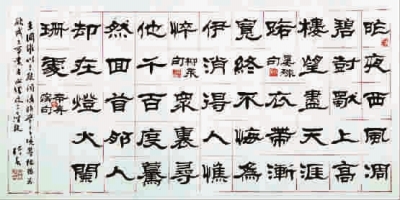 昨夜西風凋
碧樹獨上高
樓望盡天涯
路晏殊句衣帶漸
寬終不悔為
伊消得人憔
悴柳永句眾裏尋
他千百度驀
然回首那人
却在燈火闌
珊處
王國維以三段